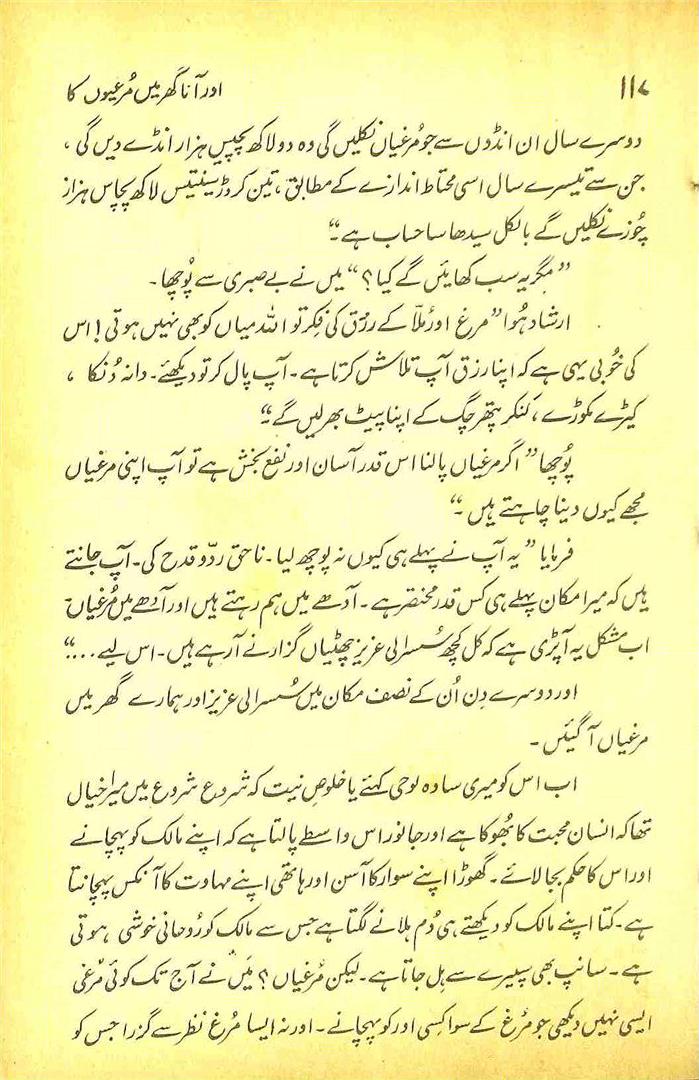 ۱۱۷ اور آنا گھر میں مُرغیوں کا
دوسرے سال ان انڈوں سے جو مُرغیاں نکلیں گی وہ دو لاکھ پچیس ہزار انڈے دیں گی ،
جن سے تیسرے سال اسی محتاط اندازے کے مطابق ، تین کروڑ سینتیس لاکھ پچاس ہزار
چُوزے نکلیں گے بالکل سیدھا سا حساب ہے ۔“
”مگر یہ سب کھائیں گے کیا ؟“ میں نے بے صبری سے پُوچھا ۔
ارشاد ہُوا ”مرغ اور مُلّا کے رزق کی فِکر تو اللہ میاں کو بھی نہیں ہوتی ! اس
کی خُوبی یہی ہے کہ اپنا رزق آپ تلاش کرتا ہے ۔ آپ پال کر تو دیکھئے ۔ دانہ دُنکا ،
کیڑے مکوڑے ، کنکر پتھر چُگ کے اپنا پیٹ بھر لیں گے ۔“
پُوچھا ”اگر مرغیاں پالنا اس قدر آسان اور نفع بخش ہے تو آپ اپنی مرغیاں
مجھے کیوں دینا چاہتے ہیں ۔“
فرمایا ”یہ آپ نے پہلے ہی کیوں نہ پوچھ لیا ۔ ناحق ردّ و قدح کی ۔ آپ جانتے
ہیں کہ میرا مکان پہلے ہی کس قدر مختصر ہے ۔ آدھے میں ہم رہتے ہیں اور آدھے میں مُرغیاں ۔
اب مشکل یہ آپڑی ہے کہ کل کچھ سُسرالی عزیز چھٹیاں گزارنے آرہے ہیں ۔ اس لیے ....“
اور دوسرے دِن اُن کے نصف مکان میں سُسرالی عزیز اور ہمارے گھر میں
مرغیاں آ گئیں ۔
اب اس کو میری سادہ لوحی کہئے یا خلوصِ نیت کہ شروع شروع میں میرا خیال
تھا کہ انسان محبت کا بُھوکا ہے اور جانور اس واسطے پالتا ہے کہ اپنے مالک کو پہچانے
اور اس کا حکم بجا لائے ۔ گھوڑا اپنے سوار کا آسن اور ہاتھی اپنے مہاوت کا آنکس پہچانتا
ہے ۔ کتا اپنے مالک کو دیکھتے ہی دُم ہلانے لگتا ہے جس سے مالک کو رُوحانی خوشی ہوتی
ہے ۔ سانپ بھی سپیرے سے ہِل جاتا ہے ۔ لیکن مُرغیاں ؟ مَیں نے آج تک کوئی مُرغی
ایسی نہیں دیکھی جو مُرغ کے سوا کسی اور کو پہچانے ۔ اور نہ ایسا مُرغ نظر سے گزرا جس کو